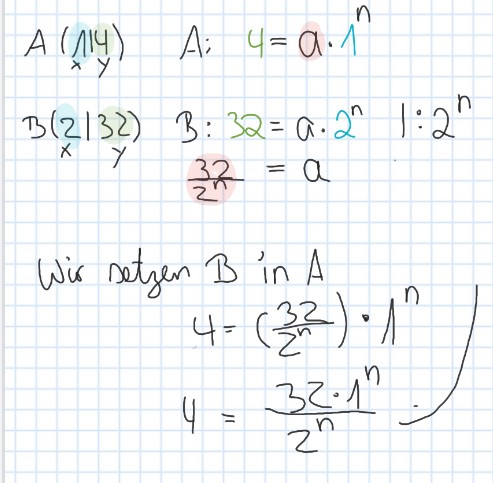 A (1|4) A: 4 = a · 1ⁿ
x y
B (2|32) B: 32 = a · 2ⁿ | : 2ⁿ
x y
32/2ⁿ = a
Wir setzen B in A
4 = (32/2ⁿ) · 1ⁿ
4 = 32 · 1ⁿ/2ⁿ